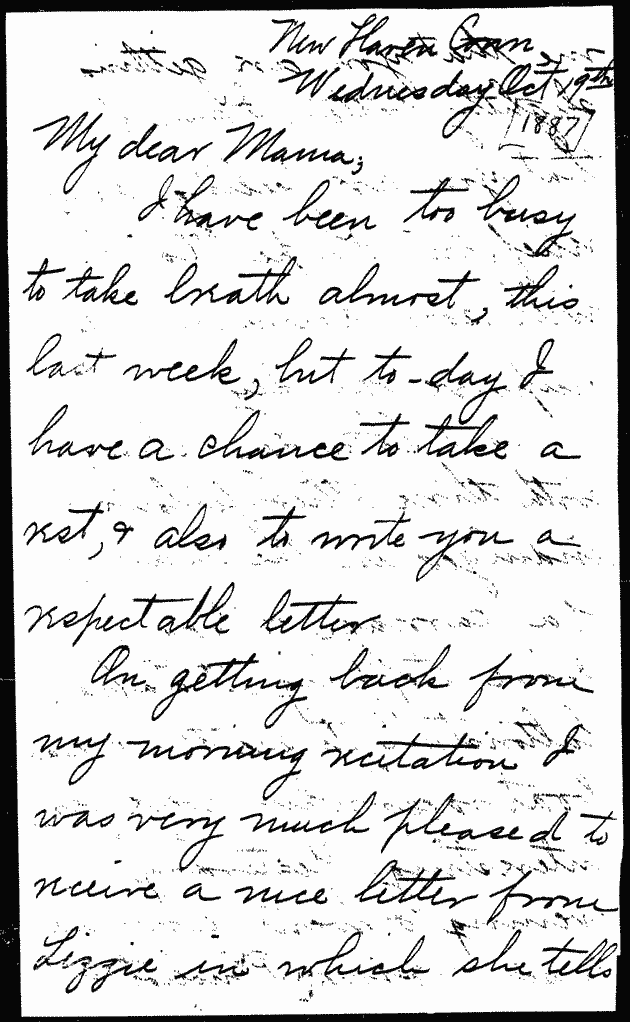 New Haven Conn
Wednesday Oct 19th
[1887]
My dear Mama;
I have been too busy
to take breath almost, this
last week, but to-day I
have a chance to take a
rest, & also to write you a
respectable letter
On getting back from
my morning recitation I
was very much pleased to
receive a nice letter from
Lizzie in which she tells